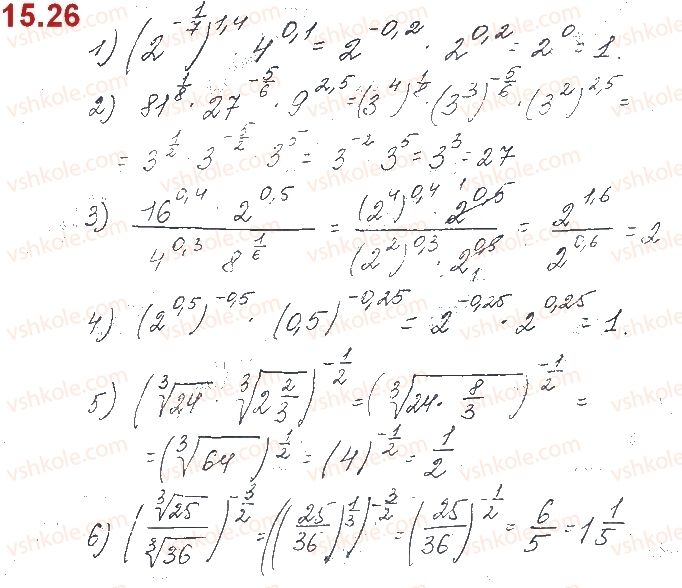 15.26
1) (2^{-1/7})^{1,4} · 4^{0,1} = 2^{-0,2} · 2^{0,2} = 2^0 = 1.
2) 81^{1/8} · 27^{-5/6} · 9^{2,5} = (3^4)^{1/8} · (3^3)^{-5/6} · (3^2)^{2,5} =
= 3^{1/2} · 3^{-5/2} · 3^5 = 3^{-2} · 3^5 = 3^3 = 27
3) (16^{0,4} · 2^{0,5}) / (4^{0,3} · 8^{1/6}) = ((2^4)^{0,4} · 2^{0,5}) / ((2^2)^{0,3} · 2^{0,5}) = 2^{1,6} / 2^{0,6} = 2
4) (2^{0,5})^{-0,5} · (0,5)^{-0,25} = 2^{-0,25} · 2^{0,25} = 1.
5) (∛24 · ∛(2 2/3))^{-1/2} = (∛(24 · 8/3))^{-1/2} =
= (∛64)^{-1/2} = (4)^{-1/2} = 1/2
6) (∛25 / ∛36)^{-3/2} = ((25/36)^{1/3})^{-3/2} = (25/36)^{-1/2} = 6/5 = 1 1/5